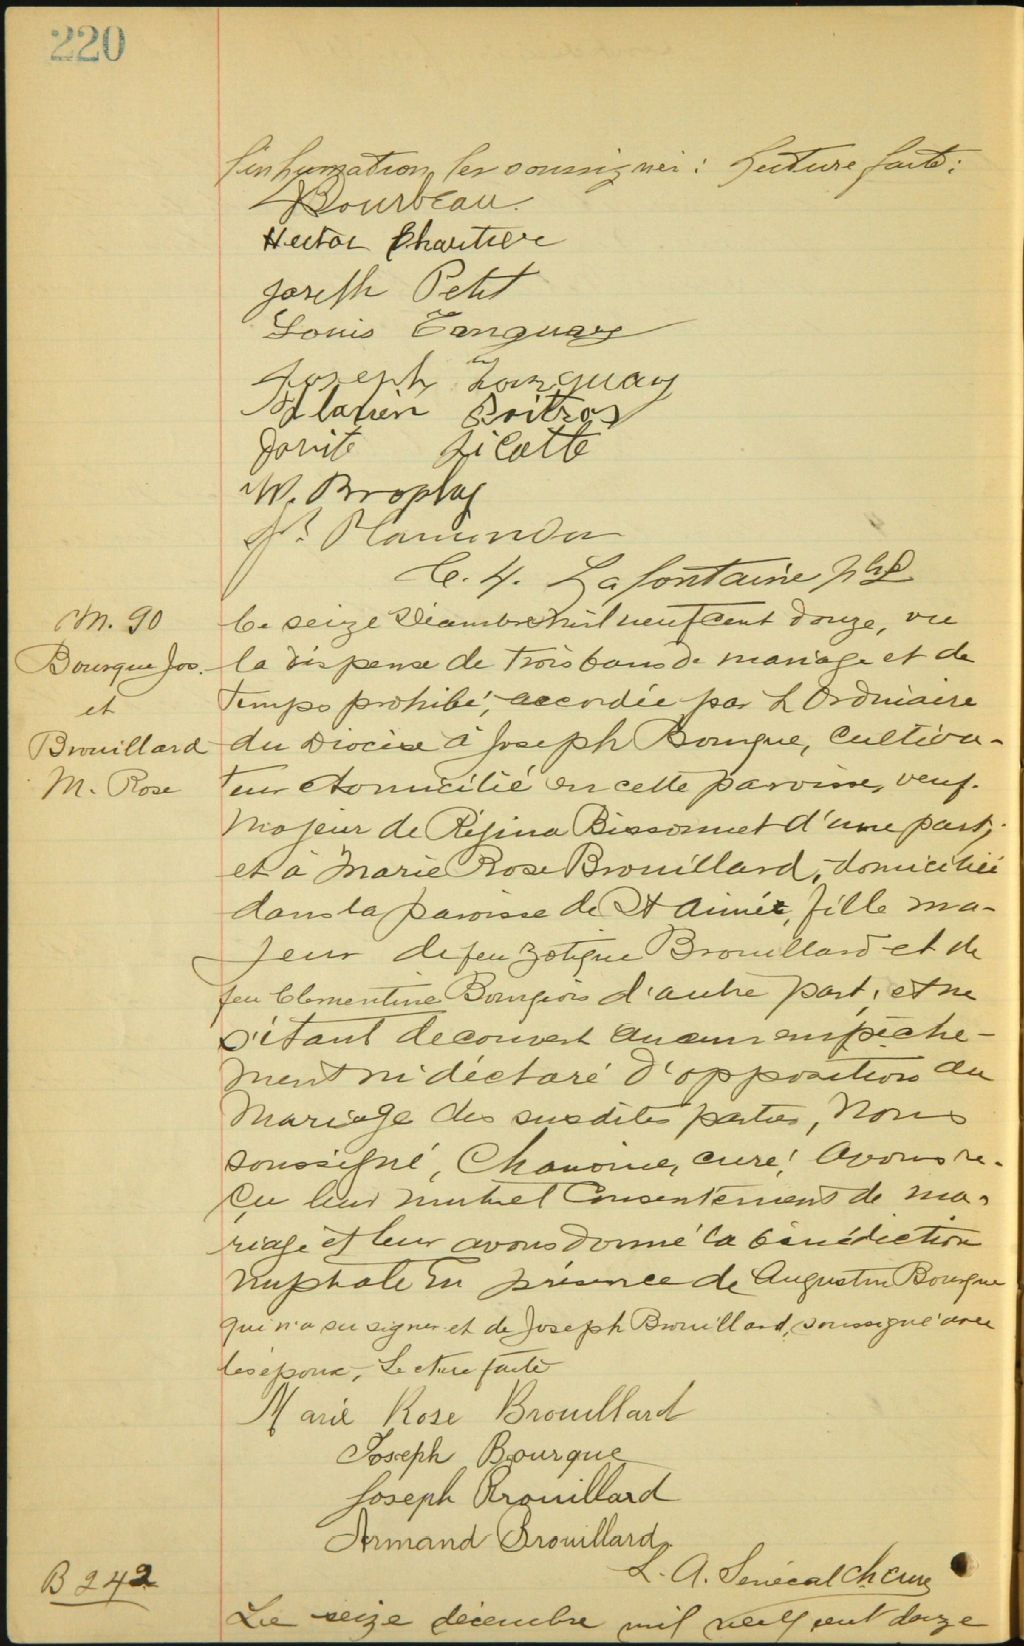 220
l'inhumation, les soussignés: Lecture faite:
Bourbeau
Hector Chartier
Joseph Petit
Louis Tanguay
Joseph Tanguay
Poitras
Turcotte
W. Brophy
Plamondon
Lafontaine ptre
M. 90
Bourque Jos.
et
Brouillard
M. Rose
Ce seize Décembre mil neuf cent douze, vu
la dispense de trois bans de mariage et de
temps prohibé, accordée par L'Ordinaire
du Diocèse à Joseph Bourque, cultiva-
teur domicilié en cette paroisse, veuf
majeur de Régina Bissonnet d'une part,
et à Marie Rose Brouillard, domiciliée
dans la paroisse de St Aimée, fille ma-
jeur de feu Zotique Brouillard et de
feu Clementine Bourgeois d'autre part, et ne
s'étant decouvert aucun empêche-
ment ni déclaré d'opposition au
mariage des susdites parties, Nous
soussigné, Chanoine, curé, avons re-
çu leur mutuel consentement de ma-
riage et leur avons donné la bénédiction
nuptiale en présence de Augustin Bourque
qui n'a su signer et de Joseph Brouillard, soussigné avec
les époux, Lecture faite
Marie Rose Brouillard
Joseph Bourque
Joseph Brouillard
Armand Brouillard
L. A. Senécal ch. curé
B 242
Le seize décembre mil neuf cent douze